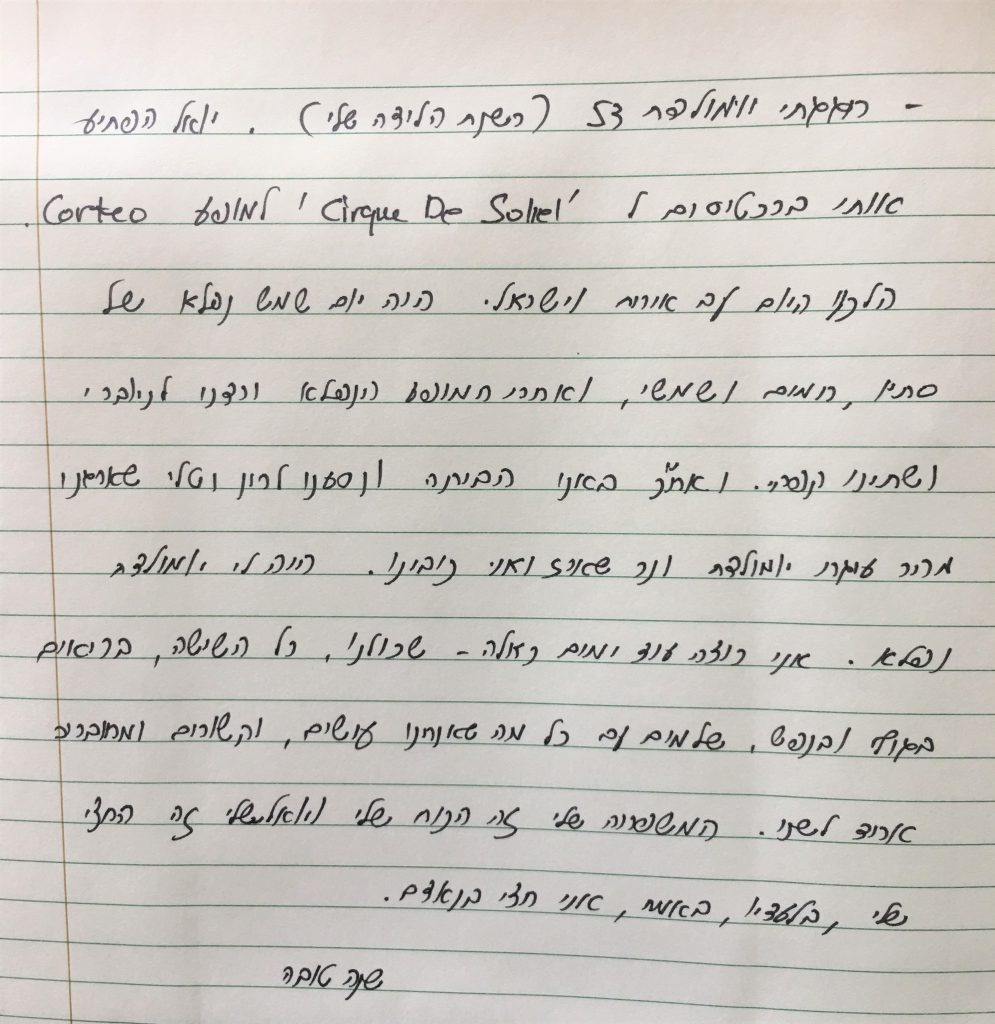 - חגגתי יומולדת 52 (בשנת הלידה שלי). יואל הפתיע
אותי בכרטיסים ל 'Cirque De Soliel' למופע Corteo.
הלכנו היום עם אורות וישראל. היה יום שמש נפלא של
סתיו, חמים ושמשי, ואחרי המופע הנפלא ירדנו לניוברי
ושתינו קופה. ואח"כ באנו הביתה ונסענו לרון וטלי שארגנו
מהר עוגת יומולדת ונר שארז ואני כיבינו. היה לי יומולדת
נפלא. אני רוצה עוד ימים כאלה - שכולנו, כל השישה, בריאים
בגוף ובנפש, שלמים עם כל מה שאנחנו עושים, וקשורים ומחוברים
אחד לשני. המשפחה שלי זה הכוח שלי ויואל שלי זה החצי
שלי, בלעדיו, באמת, אני חצי בנאדם.
שנה טובה